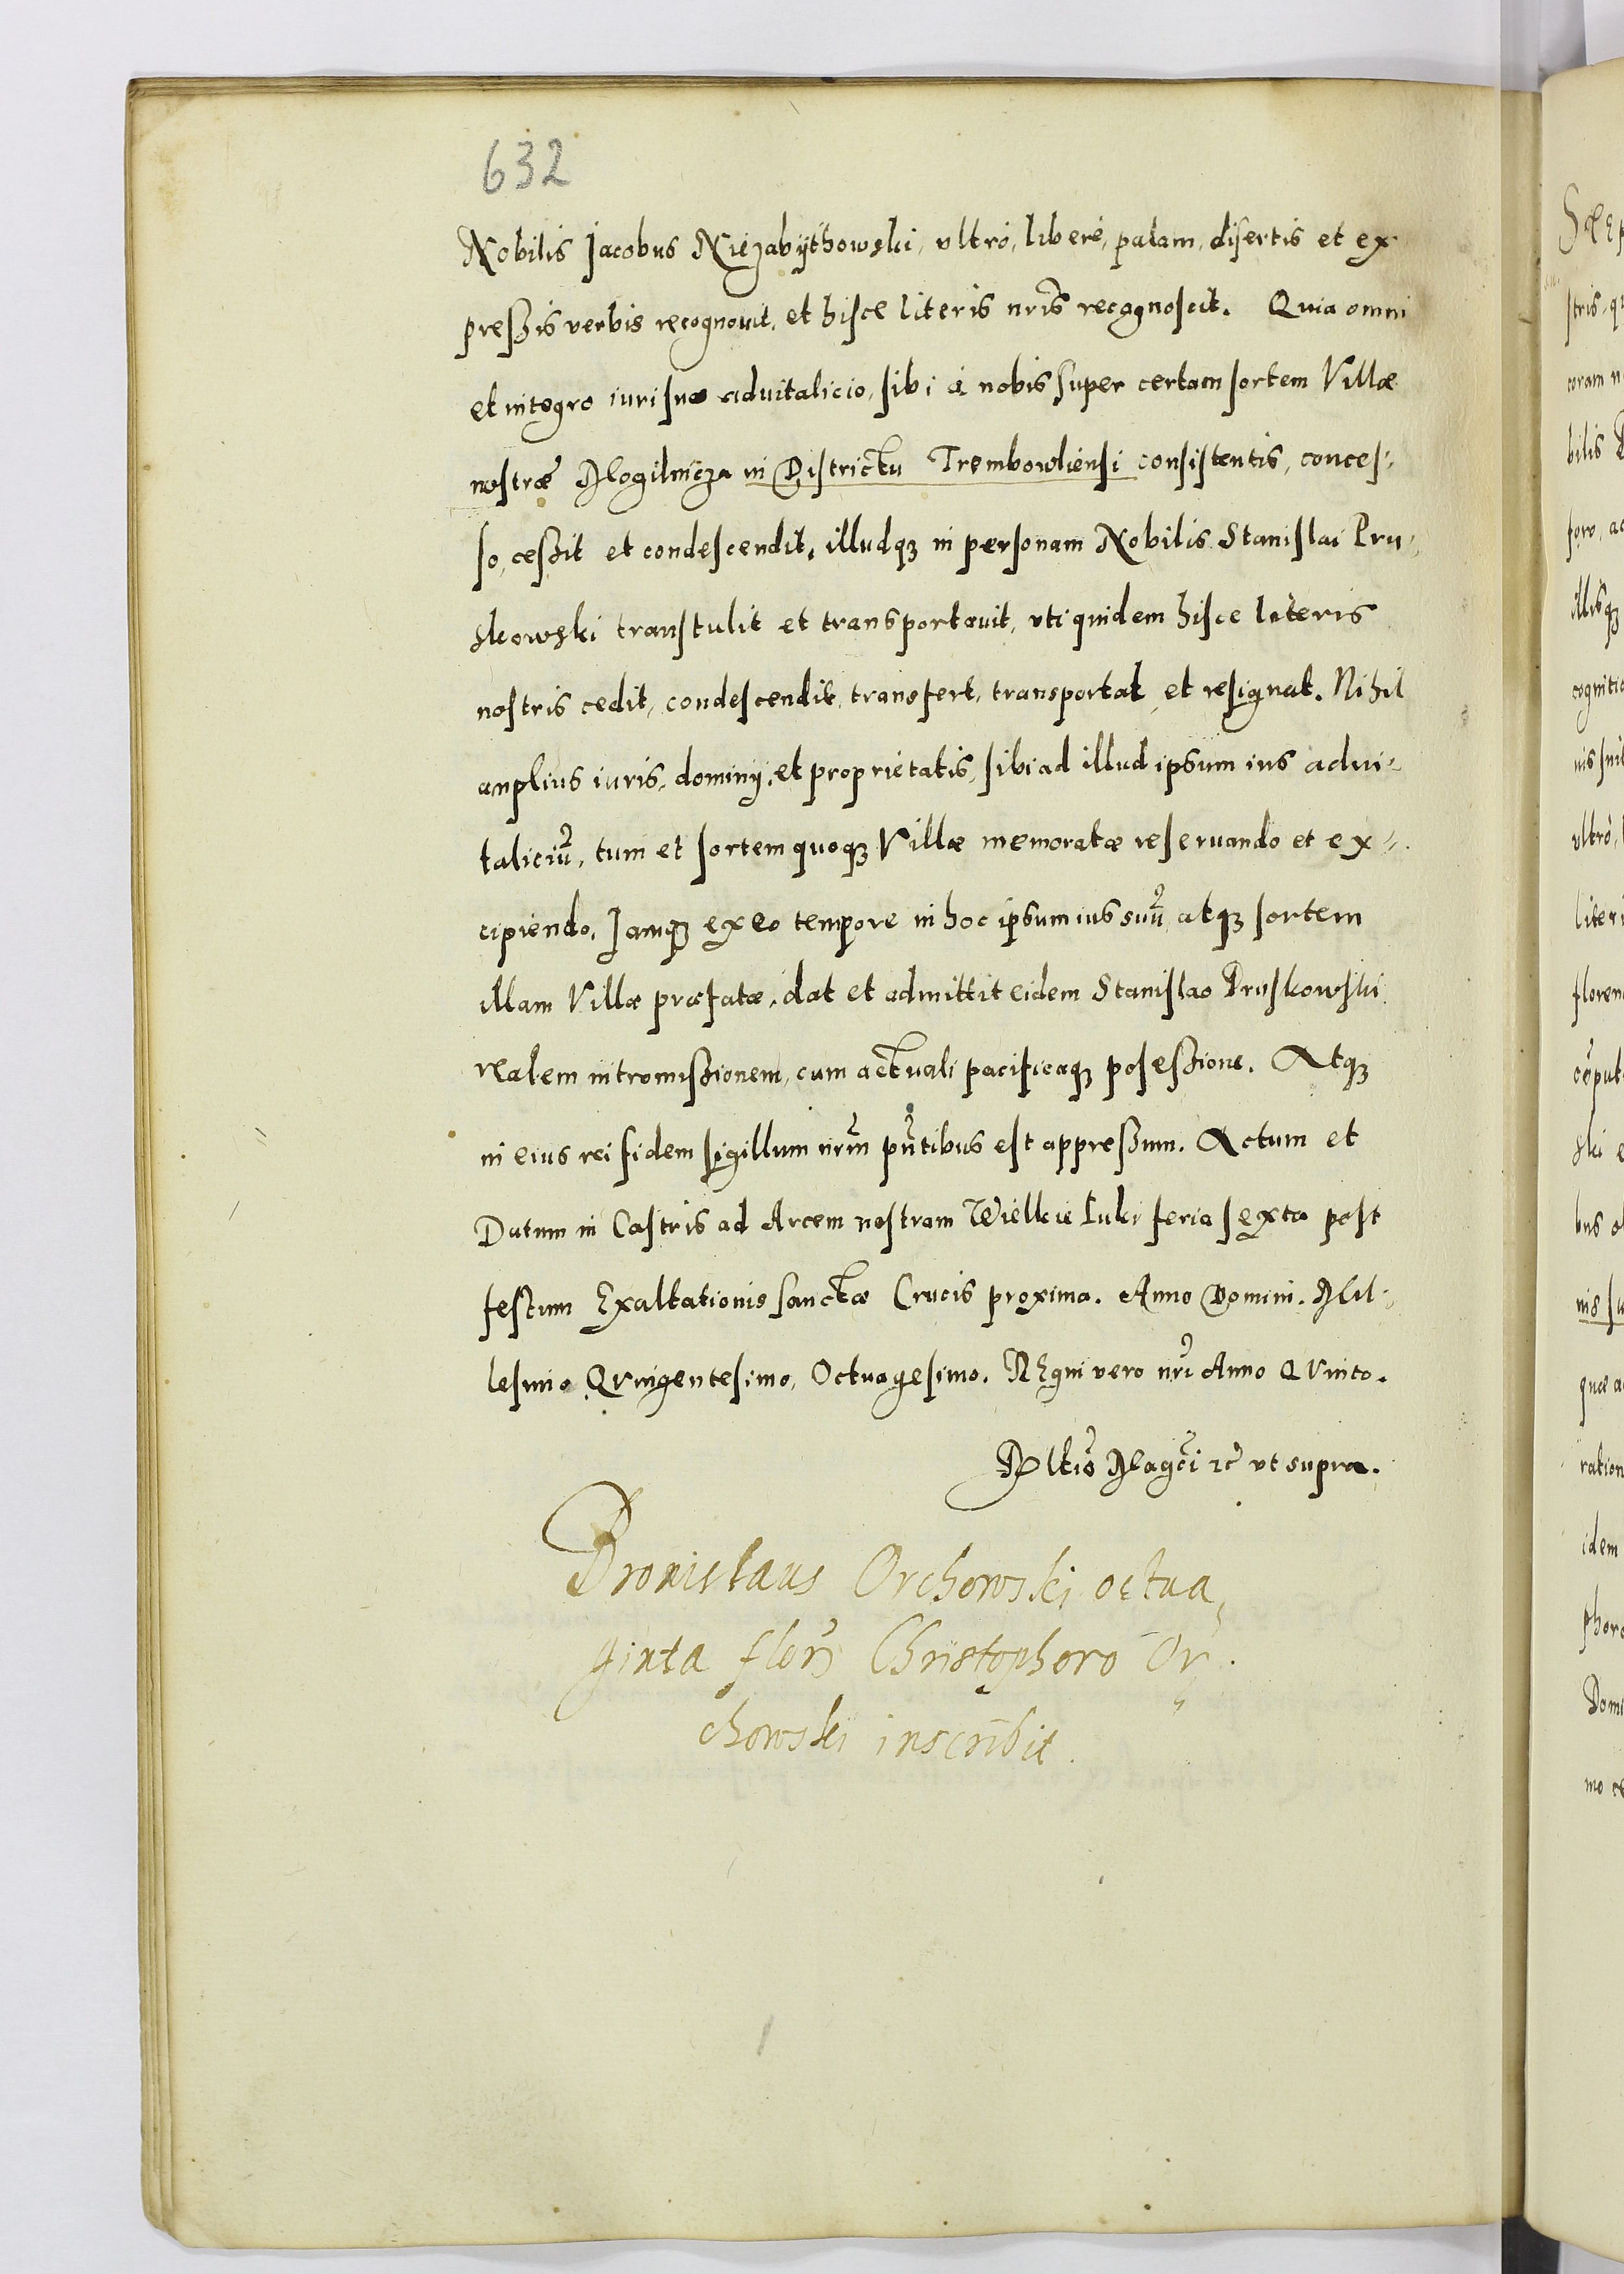 632
Nobilis Jacobus Niezabÿthowski, vltrò, liberè, palam, disertis et ex
preßis verbis recognouit, et hisce literis nrīs recognoscit. Quia omni
et integro iuri suo aduitalicio, sibi à nobis super certam sortem Villæ
nostræ Mogilnicza in Districtu Trembowliensi consistentis, conces⸗
so, ceßit et condescendit, illudqȝ in personam Nobilis Stanislai Pru⸗
skowski transtulit et transportauit, vti quidem hisce literis
nostris cedit, condescendit, transfert, transportat, et resignat. Nihil
amplius iuris, dominij, et proprietatis, sibi ad illud ipsum ius adui⸗
taliciū, tum et sortem quoqȝ Villæ memoratæ reseruando et ex⸗
cipiendo. Jamqȝ ex eo tempore in hoc ipsum ius suū atqȝ sortem
illam Villæ præfatæ, dat et admittit eidem Stanislao Pruskowski
realem intromißionem, cum actuali pacificaqȝ poseßione. Atqȝ
in eius rei fidem sigillum nrūm pn̄tibus est appreßum. Actum et
Datum in Castris ad Arcem nostram Wielkie Luki feria sexta post
festum Exaltationis sanctæ Crucis proxima. Anno Domini. Mil⸗
lesimo Quingentesimo, Octuagesimo. REgni vero nrī Anno QVinto.
Rltīo Magcī ꝛc̄ vt supra.
Bronislaus Orchowski octua⸗
ginta flor̄ Christophoro Or⸗
chowski inscribit.